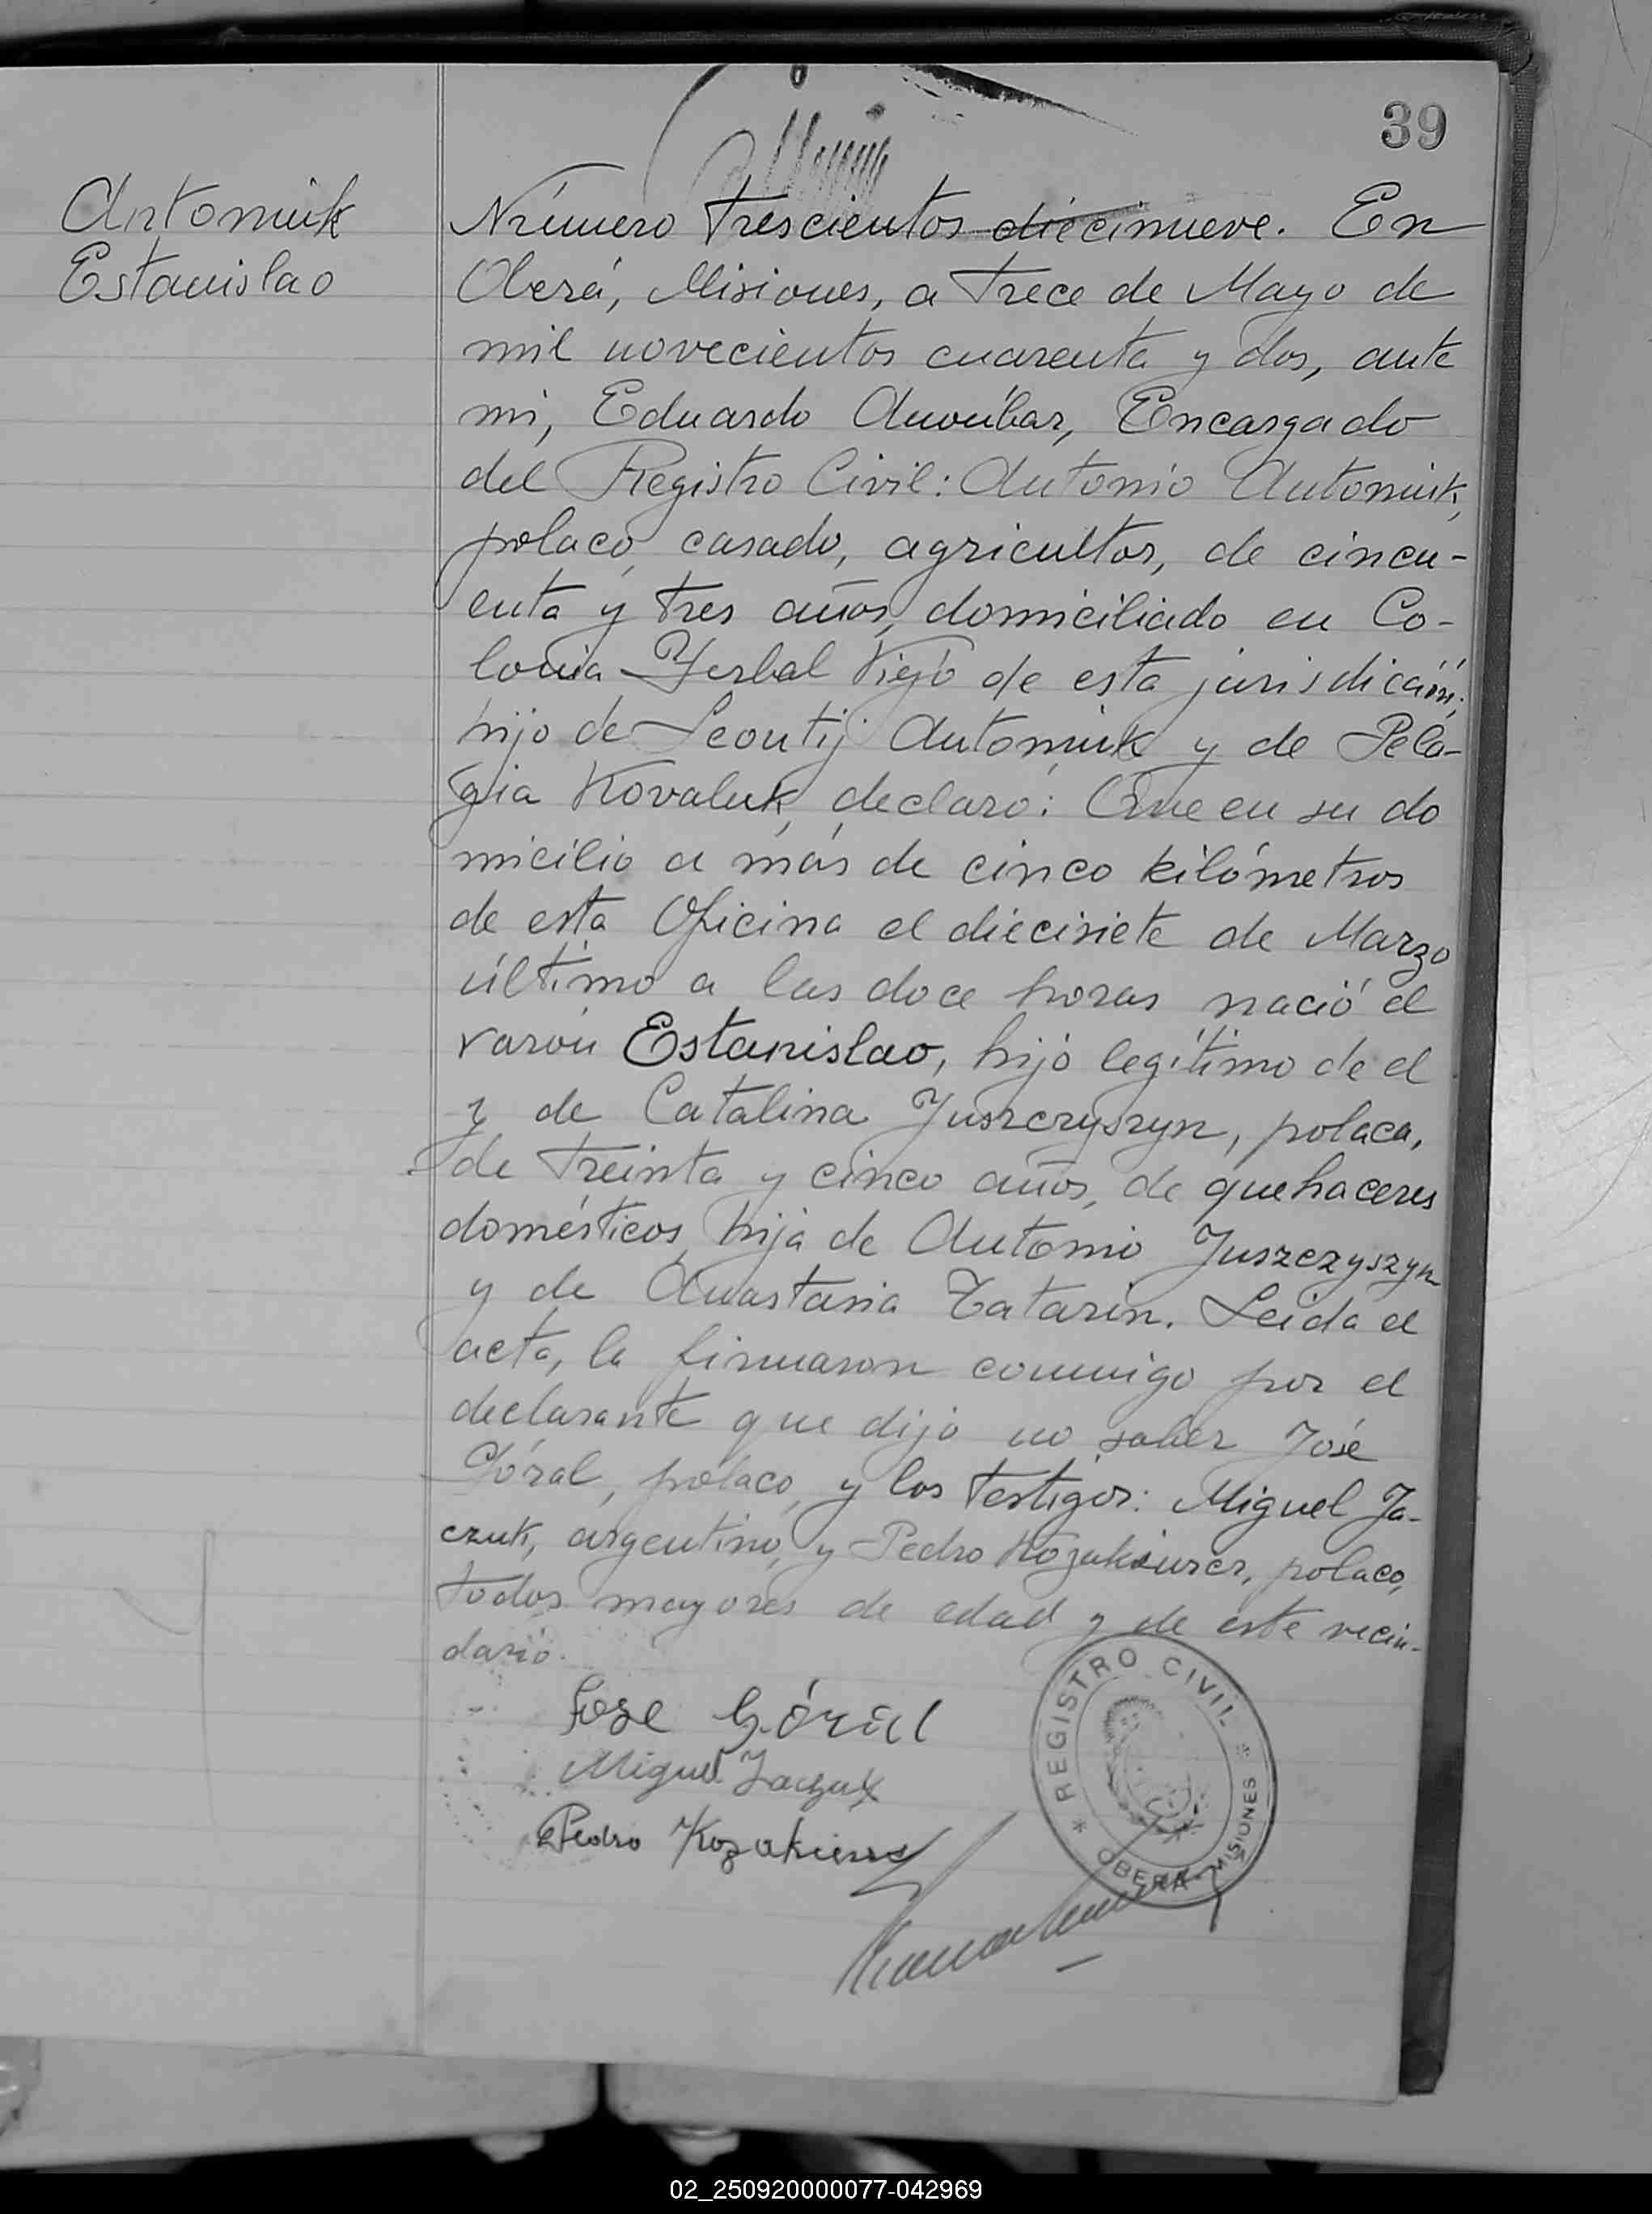 39
Antoniuk
Estanislao
Número trescientos diecinueve. En
Oberá, Misiones, a trece de Mayo de
mil novecientos cuarenta y dos, ante
mi, Eduardo Anonibar, Encargado
del Registro Civil: Antonio Antoniuk,
polaco, casado, agricultor, de cincu-
enta y tres años, domiciliado en Co-
lonia Yerbal Viejo de esta jurisdicción;
hijo de Leontij Antoniuk y de Pela-
gia Kovaluk, declaró: Que en su do
micilio a más de cinco kilómetros
de esta Oficina el diecisiete de Marzo
último a las doce horas nació el
varón Estanislao, hijo legítimo de el
y de Catalina Juszczyszyn, polaca,
de treinta y cinco años, de quehaceres
domésticos, hija de Antonio Juszczyszyn
y de Anastasia Tatarin. Leida el
acta, la firmaron conmigo por el
declarante que dijo no saber José
Góral, polaco, y los testigos: Miguel Ja-
czuk, argentino, y Pedro
polaco,
todos mayores de edad y de este vecin-
dario.
Jose Góral
Miguel Jaczuk
Pedro
REGISTRO CIVIL
OBERA - MISIONES
02_250920000077-042969